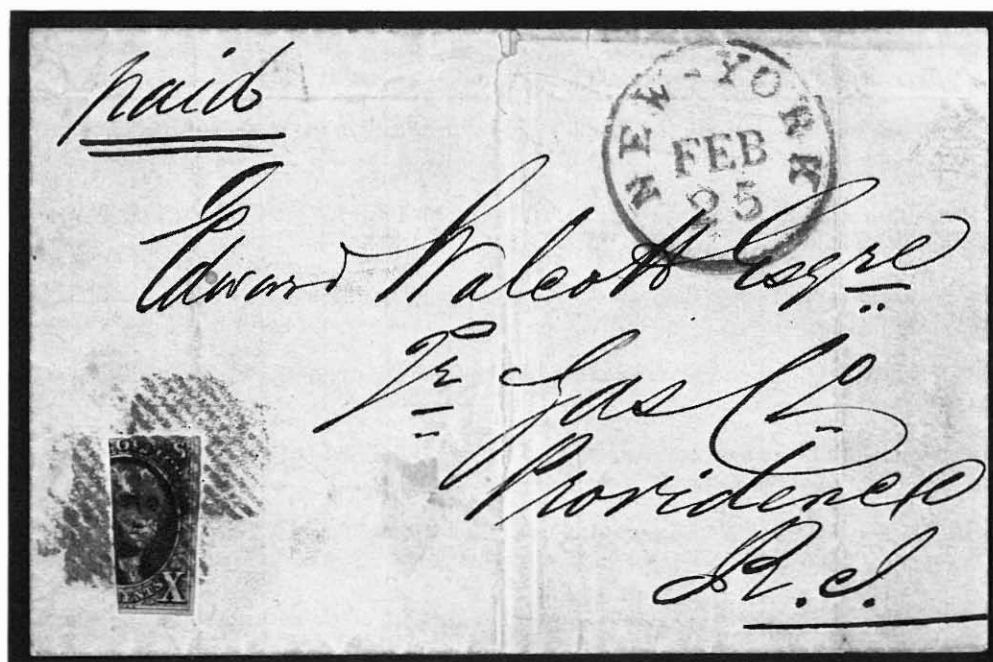 paid
NEW-YORK
FEB
25
Edward Walcott Esqre
Tr Gas Co
Providence
R.I.
X